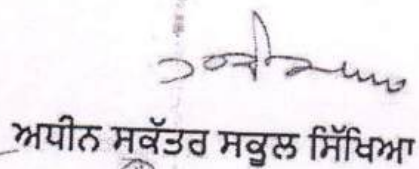 ਅਧੀਨ ਸਕੱਤਰ ਸਕੂਲ ਸਿੱਖਿਆ